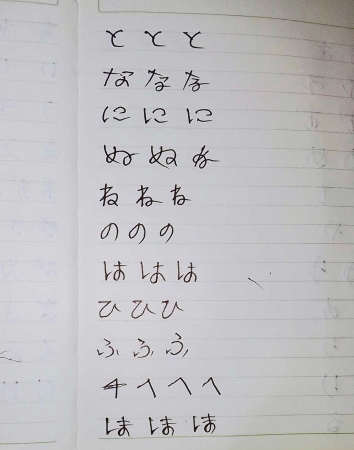 と と と
な な な
に に に
ぬ ぬ ぬ
ね ね ね
の の の
は は は
ひ ひ ひ
ふ ふ ふ
へ へ へ
ほ ほ ほ